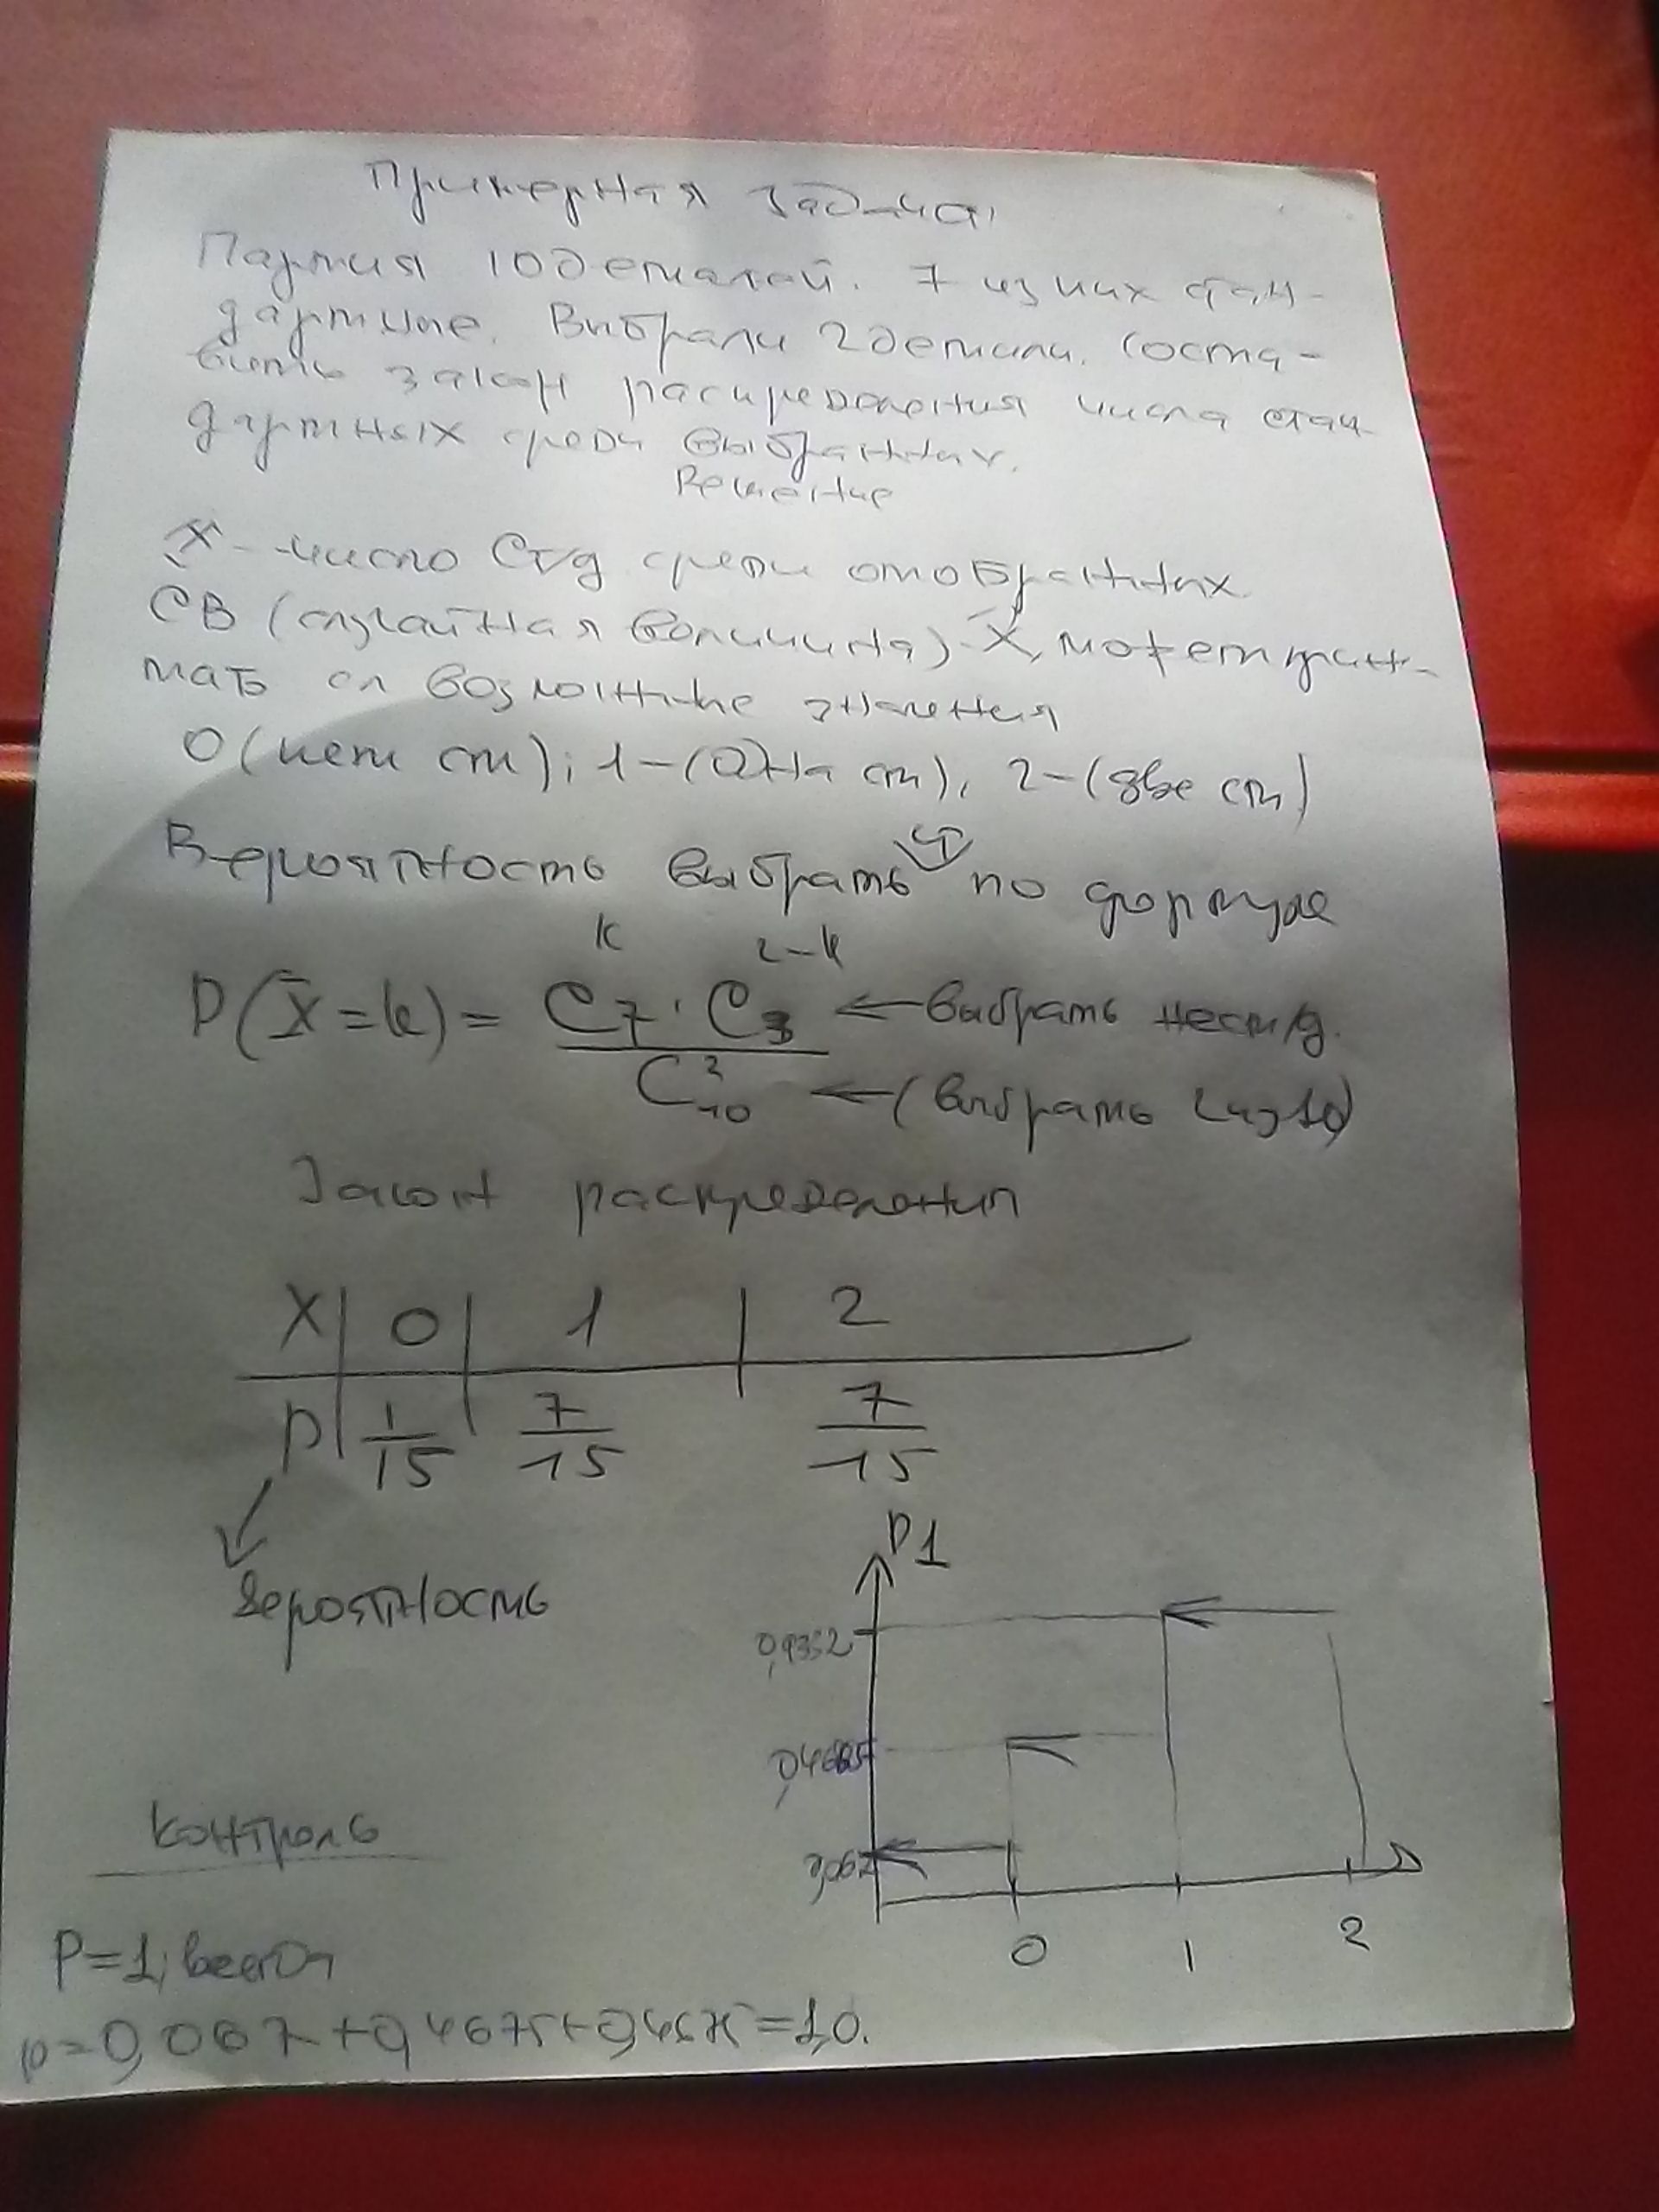 Примерная задача
Партия 10 деталей. 7 из них стан-
дартные. Выбрали 2 детали. Соста-
вить закон распределения числа стан-
дартных среди выбранных.
Решение
X - число ст/д среди отобранных
СВ (случайная величина) X, может прини-
мать сл возможные значения
0 (нет ст); 1-(одна ст), 2-(две ст)
Вероятность выбрать по формуле
P(X=k) = C₇ᵏ · C₃²⁻ᵏ ← выбрать нест/д.
C₁₀² ← (выбрать 2 из 10)
Закон распределения
X | 0 | 1 | 2
p | 1/15 | 7/15 | 7/15
вероятность
P1
0,9352
0,067
0 1 2
Контроль
P=1, всегда
p=0,067+0,4675+0,4675=1,0.